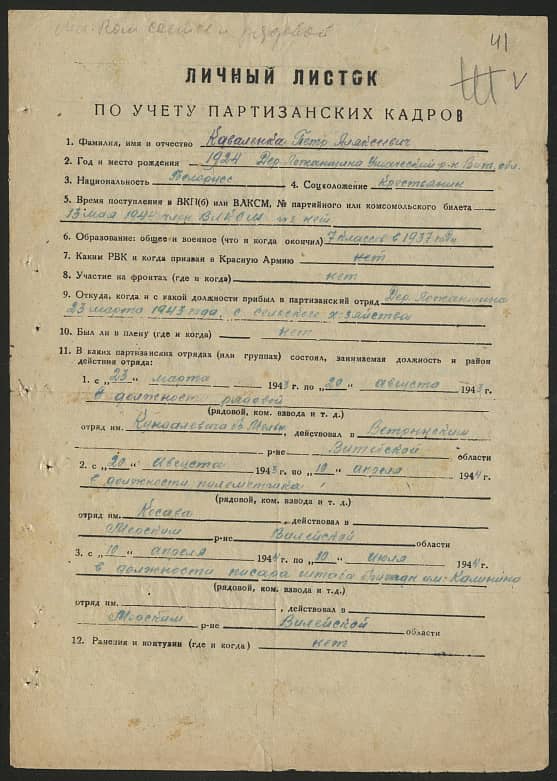 41
ЛИЧНЫЙ ЛИСТОК
ПО УЧЕТУ ПАРТИЗАНСКИХ КАДРОВ
1. Фамилия, имя и отчество Каваленка Петр Аляксеевич
2. Год и место рождения 1924 Дер. Ушачский р-н Вит. обл.
3. Национальность Белорусс 4. Соцположение Крестьянин
5. Время поступления в ВКП(б) или ВЛКСМ, № партийного или комсомольского билета
13 мая 1944 член ВЛКСМ нет
6. Образование: общее и военное (что и когда окончил) 7 классов в 1937 году
7. Каким РВК и когда призван в Красную Армию нет
8. Участие на фронтах (где и когда) нет
9. Откуда, когда и с какой должности прибыл в партизанский отряд Дер.
23 марта 1943 года, с сельского х-зяйства
10. Был ли в плену (где и когда) нет
11. В каких партизанских отрядах (или группах) состоял, занимаемая должность и район
действия отряда:
1. с „23" марта 1943 г. по „20" августа 1943 г.
в должности рядовой
(рядовой, ком. взвода и т. д.)
отряд им. , действовал в
р-не области
2. с „20" августа 1943 г. по „10" апреля 1944 г.
в должности пулеметчика
(рядовой, ком. взвода и т. д.)
отряд им. , действовал в
Мёоским р-не Вилейской области
3. с „10" апреля 1944 г. по „10" июля 1944 г.
в должности писаря штаба бригады им. Калинина
(рядовой, ком. взвода и т.д.)
отряд им. , действовал в
Мёоским р-не Вилейской области
12. Ранения и контузии (где и когда) нет